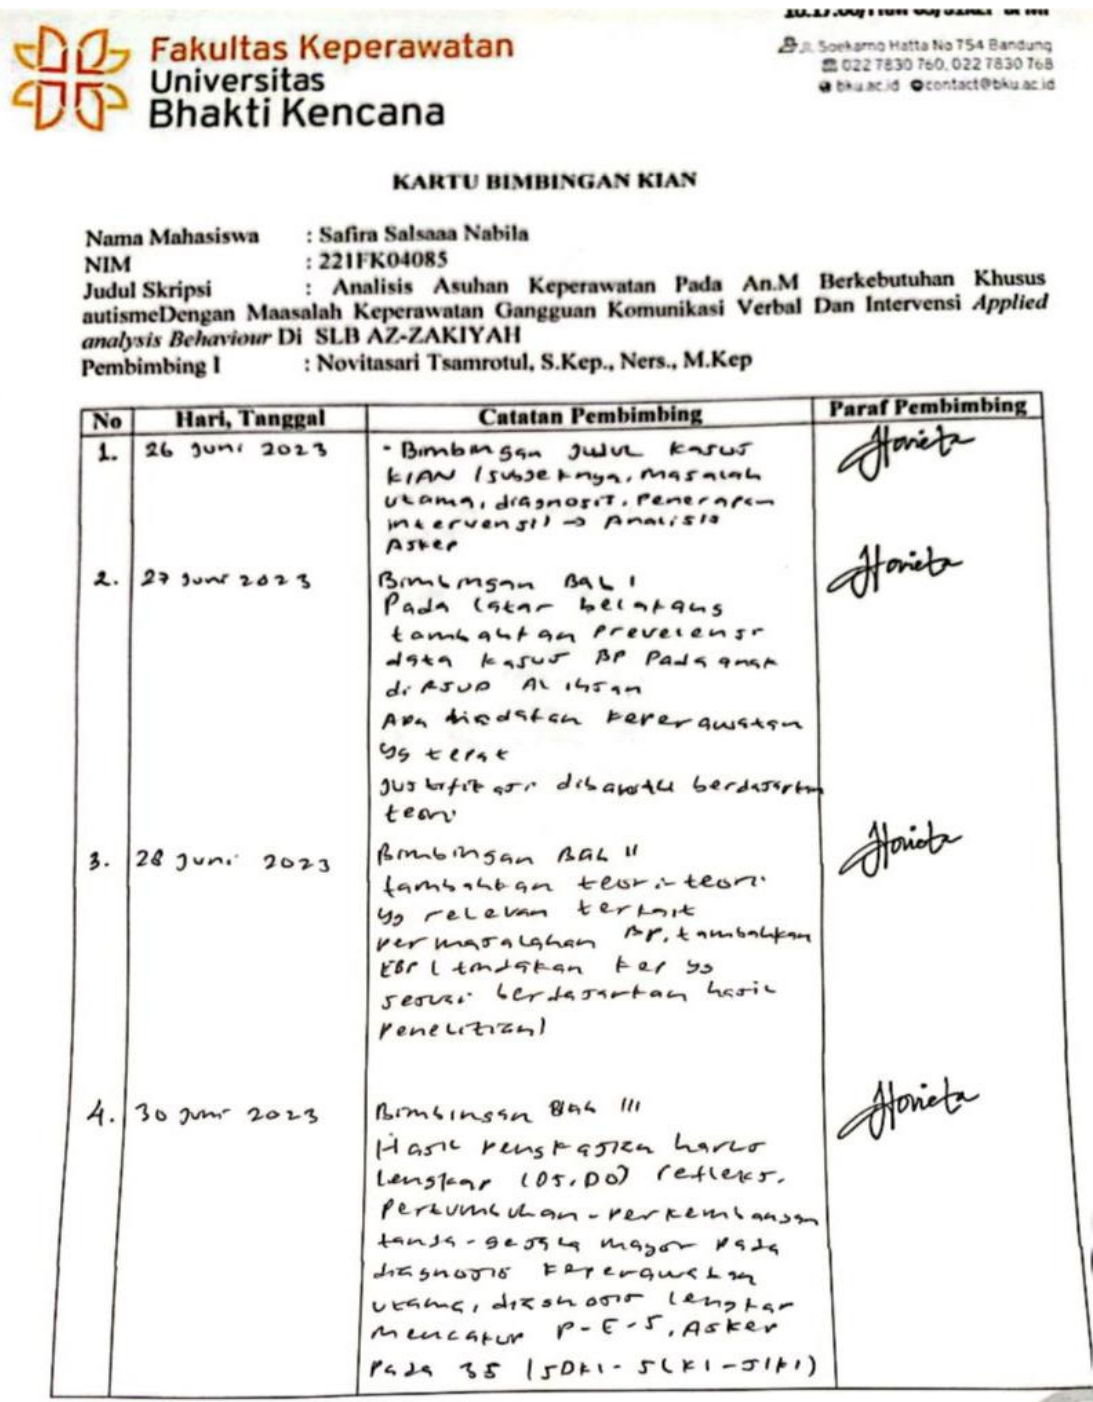 Fakultas Keperawatan
Universitas
Bhakti Kencana
Jl. Soekarno Hatta No 754 Bandung
022 7830 760, 022 7830 768
bku.ac.id contact@bku.ac.id
KARTU BIMBINGAN KIAN
Nama Mahasiswa : Safira Salsaaa Nabila
NIM : 221FK04085
Judul Skripsi : Analisis Asuhan Keperawatan Pada An.M Berkebutuhan Khusus
autismeDengan Maasalah Keperawatan Gangguan Komunikasi Verbal Dan Intervensi Applied
analysis Behaviour Di SLB AZ-ZAKIYAH
Pembimbing I : Novitasari Tsamrotul, S.Kep., Ners., M.Kep
No Hari, Tanggal Catatan Pembimbing Paraf Pembimbing
1. 26 Juni 2023 - Bimbingan Judul Kasus
KIAN (subjeknya, masalah
utama, diagnosis, Penerapan
intervensi) → Analisis
Askep
2. 27 Juni 2023 Bimbingan Bab I
Pada latar belakang
tambahkan Prevelensi
data kasus BP Pada anak
di RSUD Al ihsan
Apa tindakan keperawatan
yg tepat
Justifikasi dibawah berdasarkan
teori
3. 28 Juni 2023 Bimbingan Bab II
tambahkan teori-teori
yg relevan terkait
permasalahan BP, tambahkan
EBP (tindakan kep yg
sesuai berdasarkan hasil
Penelitian)
4. 30 Juni 2023 Bimbingan Bab III
Hasil Pengkajian harus
lengkap (DS, DO) refleks,
Pertumbuhan - perkembangan
tanda-gejala mayor pada
diagnosis keperawatan
utama, diagnosis lengkap
mencakup P-E-S, Askep
Pada 3S (SDKI - SLKI - SIKI)